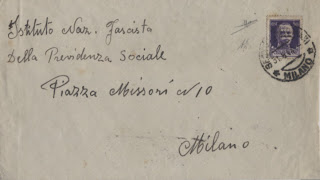 Istituto Naz. Fascista
Della Previdenza Sociale
Piazza Missori N 10
Milano
MILANO